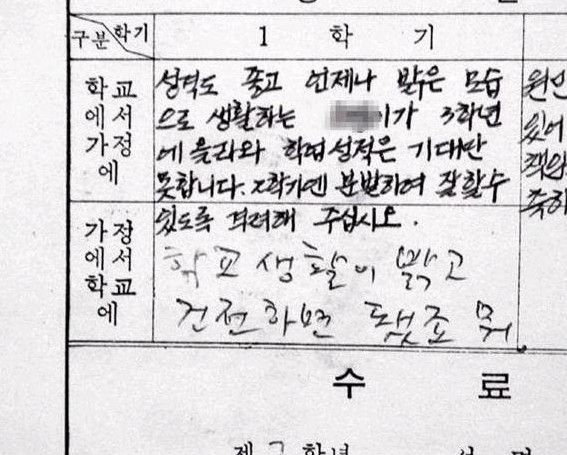 구분 학기
1 학 기
학교
에서
가정
에
성격도 좋고 언제나 밝은 모습
으로 생활하는 이가 3학년
에 올라와 학업성적은 기대만
못합니다. 2학기엔 분발하여 잘할수
있도록 격려해 주십시오.
원인
있어
가정
에서
학교
에
학교생활이 밝고
건전하면 됐죠 뭐.
수 료